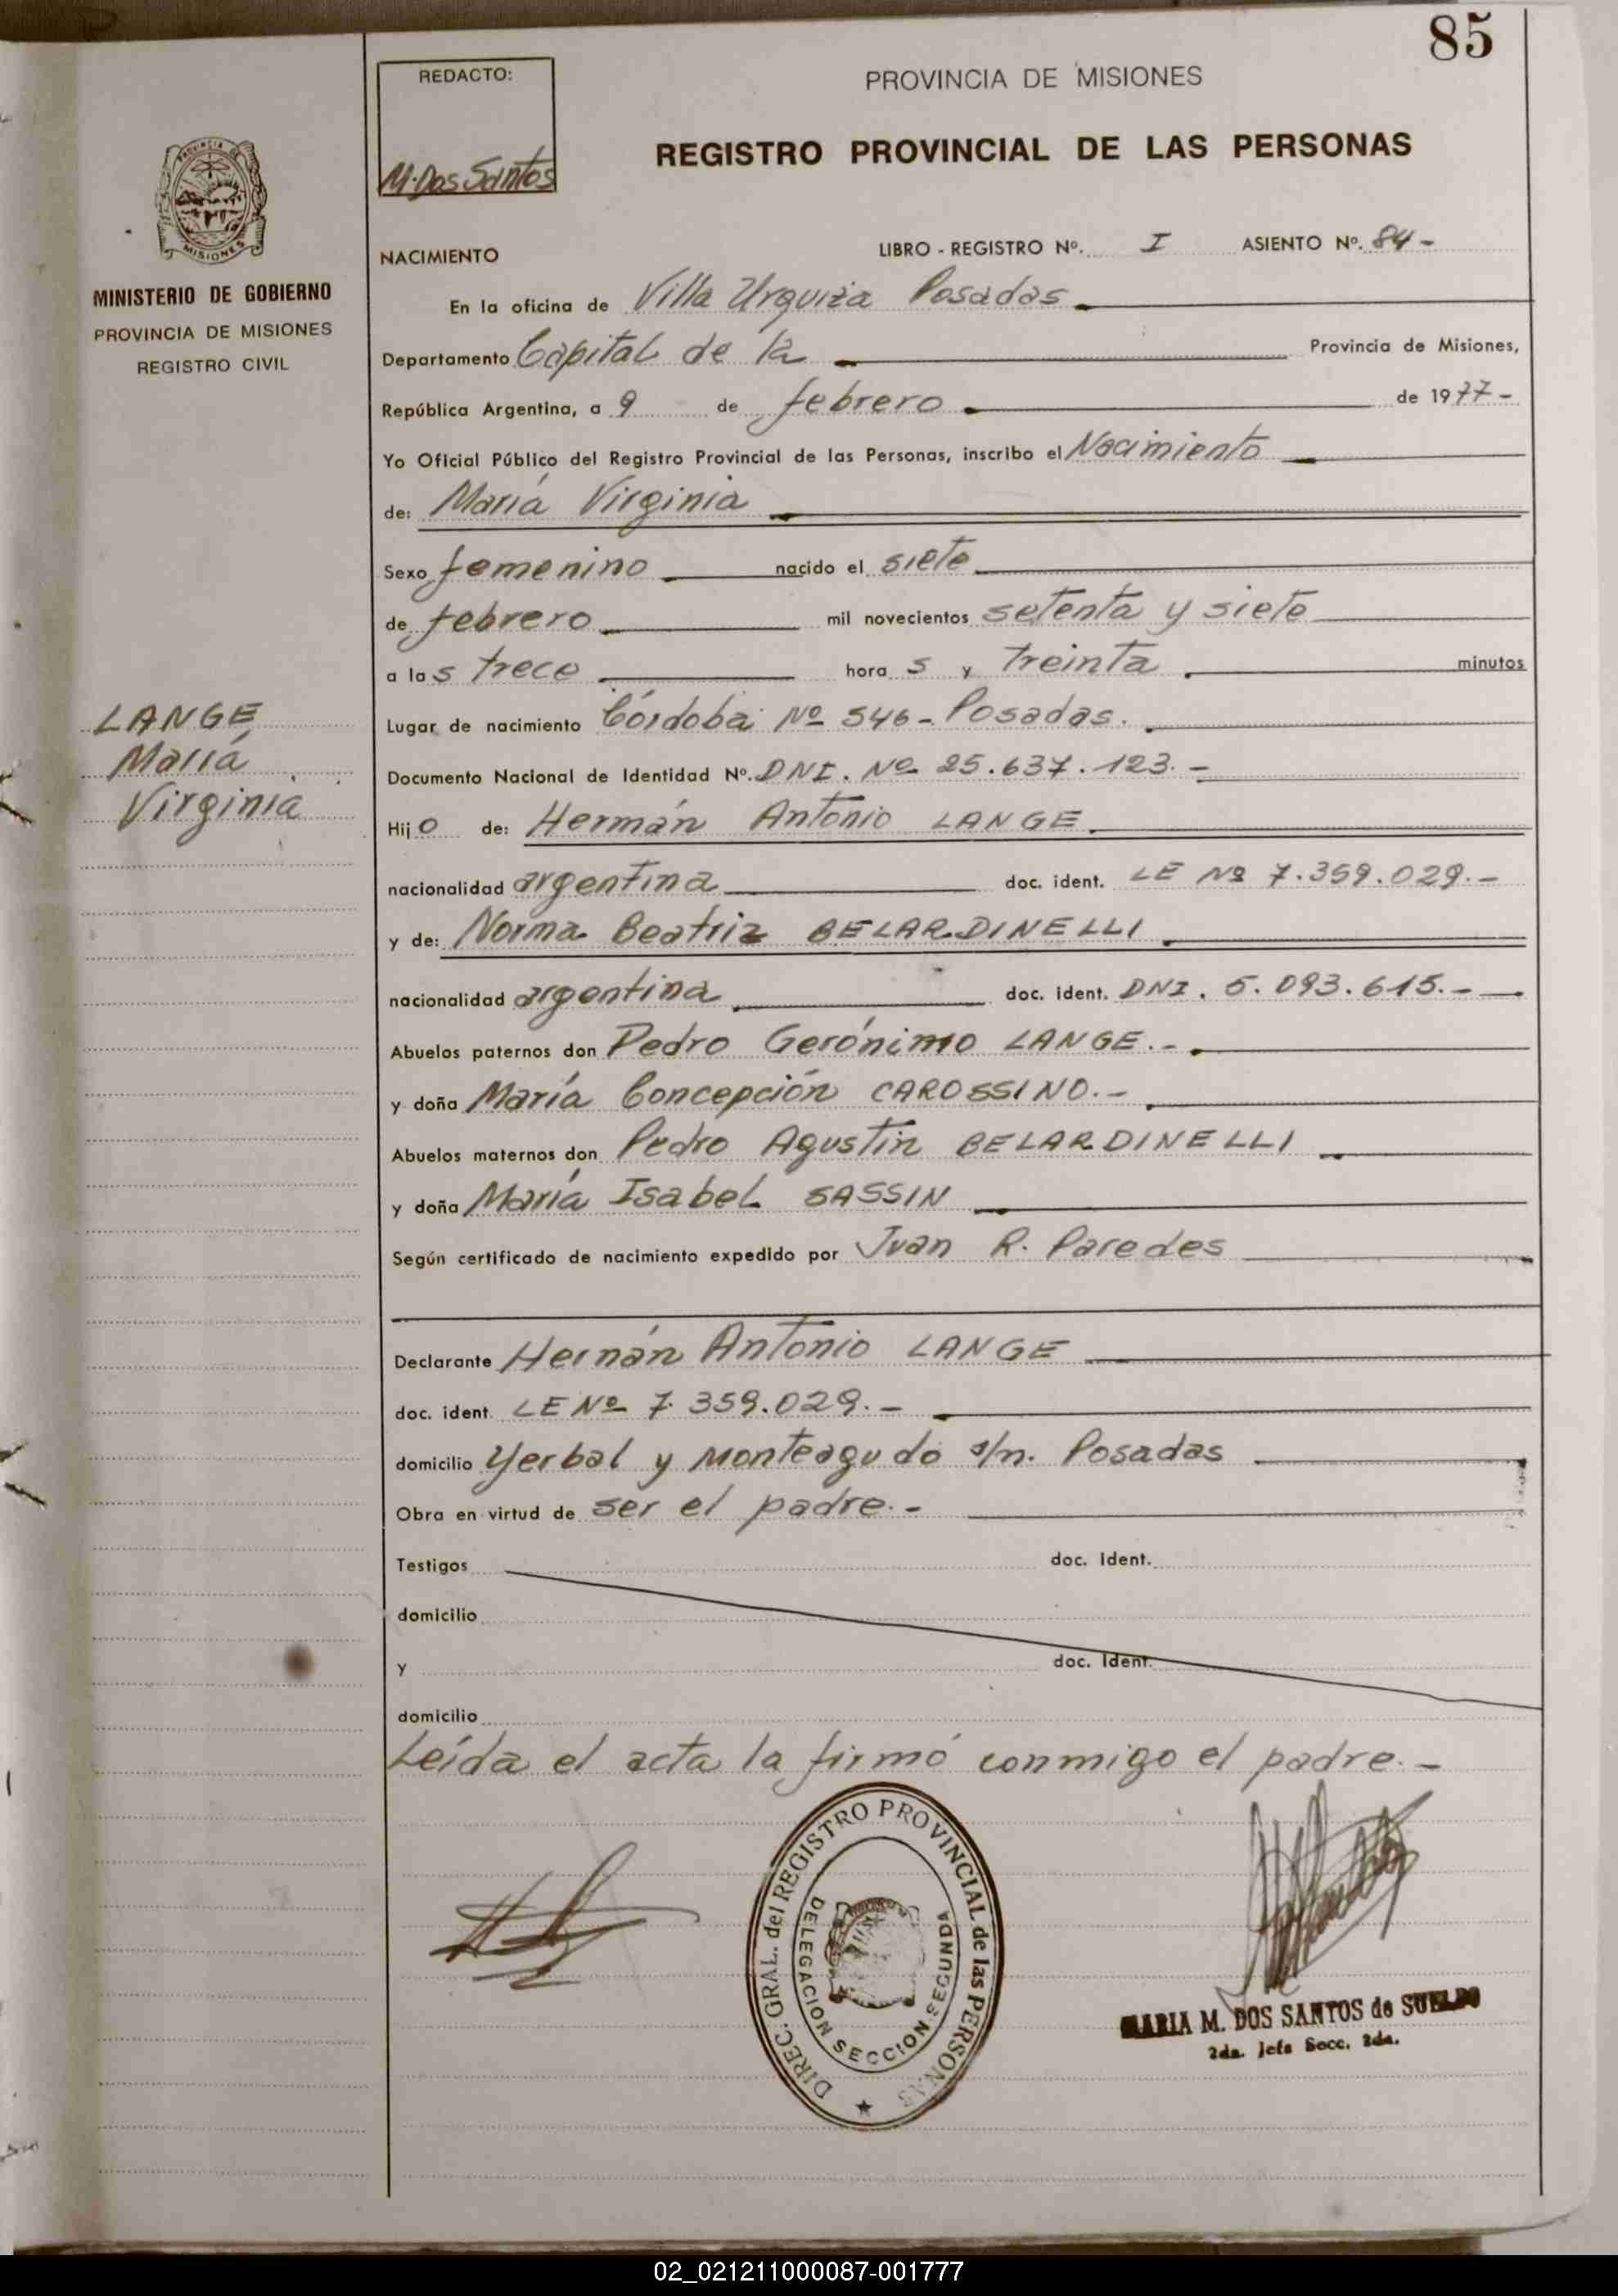 85
REDACTO:
M. Dos Santos
PROVINCIA DE MISIONES
REGISTRO PROVINCIAL DE LAS PERSONAS
PROVINCIA DE
MISIONES
MINISTERIO DE GOBIERNO
PROVINCIA DE MISIONES
REGISTRO CIVIL
NACIMIENTO LIBRO - REGISTRO Nº. I ASIENTO Nº. 84 -
En la oficina de Villa Urquiza Posadas
Departamento Capital de la Provincia de Misiones,
República Argentina, a 9 de febrero de 1977 -
Yo Oficial Público del Registro Provincial de las Personas, inscribo el Nacimiento
de: María Virginia
Sexo femenino nacido el siete
de febrero mil novecientos setenta y siete
a las trece hora s y treinta minutos
LANGE
María
Virginia
Lugar de nacimiento Córdoba Nº 546 - Posadas.
Documento Nacional de Identidad Nº. DNI. Nº 25.637.123. -
Hijo de: Hermán Antonio LANGE
nacionalidad argentina doc. ident. LE Nº 7.359.029. -
y de: Norma Beatriz BELARDINELLI
nacionalidad argentina doc. ident. DNI. 5.093.615. -
Abuelos paternos don Pedro Gerónimo LANGE. -
y doña María Concepción CAROSSINO. -
Abuelos maternos don Pedro Agustín BELARDINELLI
y doña María Isabel SASSIN
Según certificado de nacimiento expedido por Juan R. Paredes
Declarante Hernán Antonio LANGE
doc. ident. LE Nº 7.359.029. -
domicilio Yerbal y Monteagudo s/n. Posadas
Obra en virtud de ser el padre. -
Testigos doc. ident.
domicilio
y doc. ident.
domicilio
Leída el acta la firmó conmigo el padre. -
DIREC. GRAL. del REGISTRO PROVINCIAL de las PERSONAS
DELEGACION SECCION SEGUNDA
MARIA M. DOS SANTOS de SUELDO
2da. Jefa Secc. 2da.
02_021211000087-001777